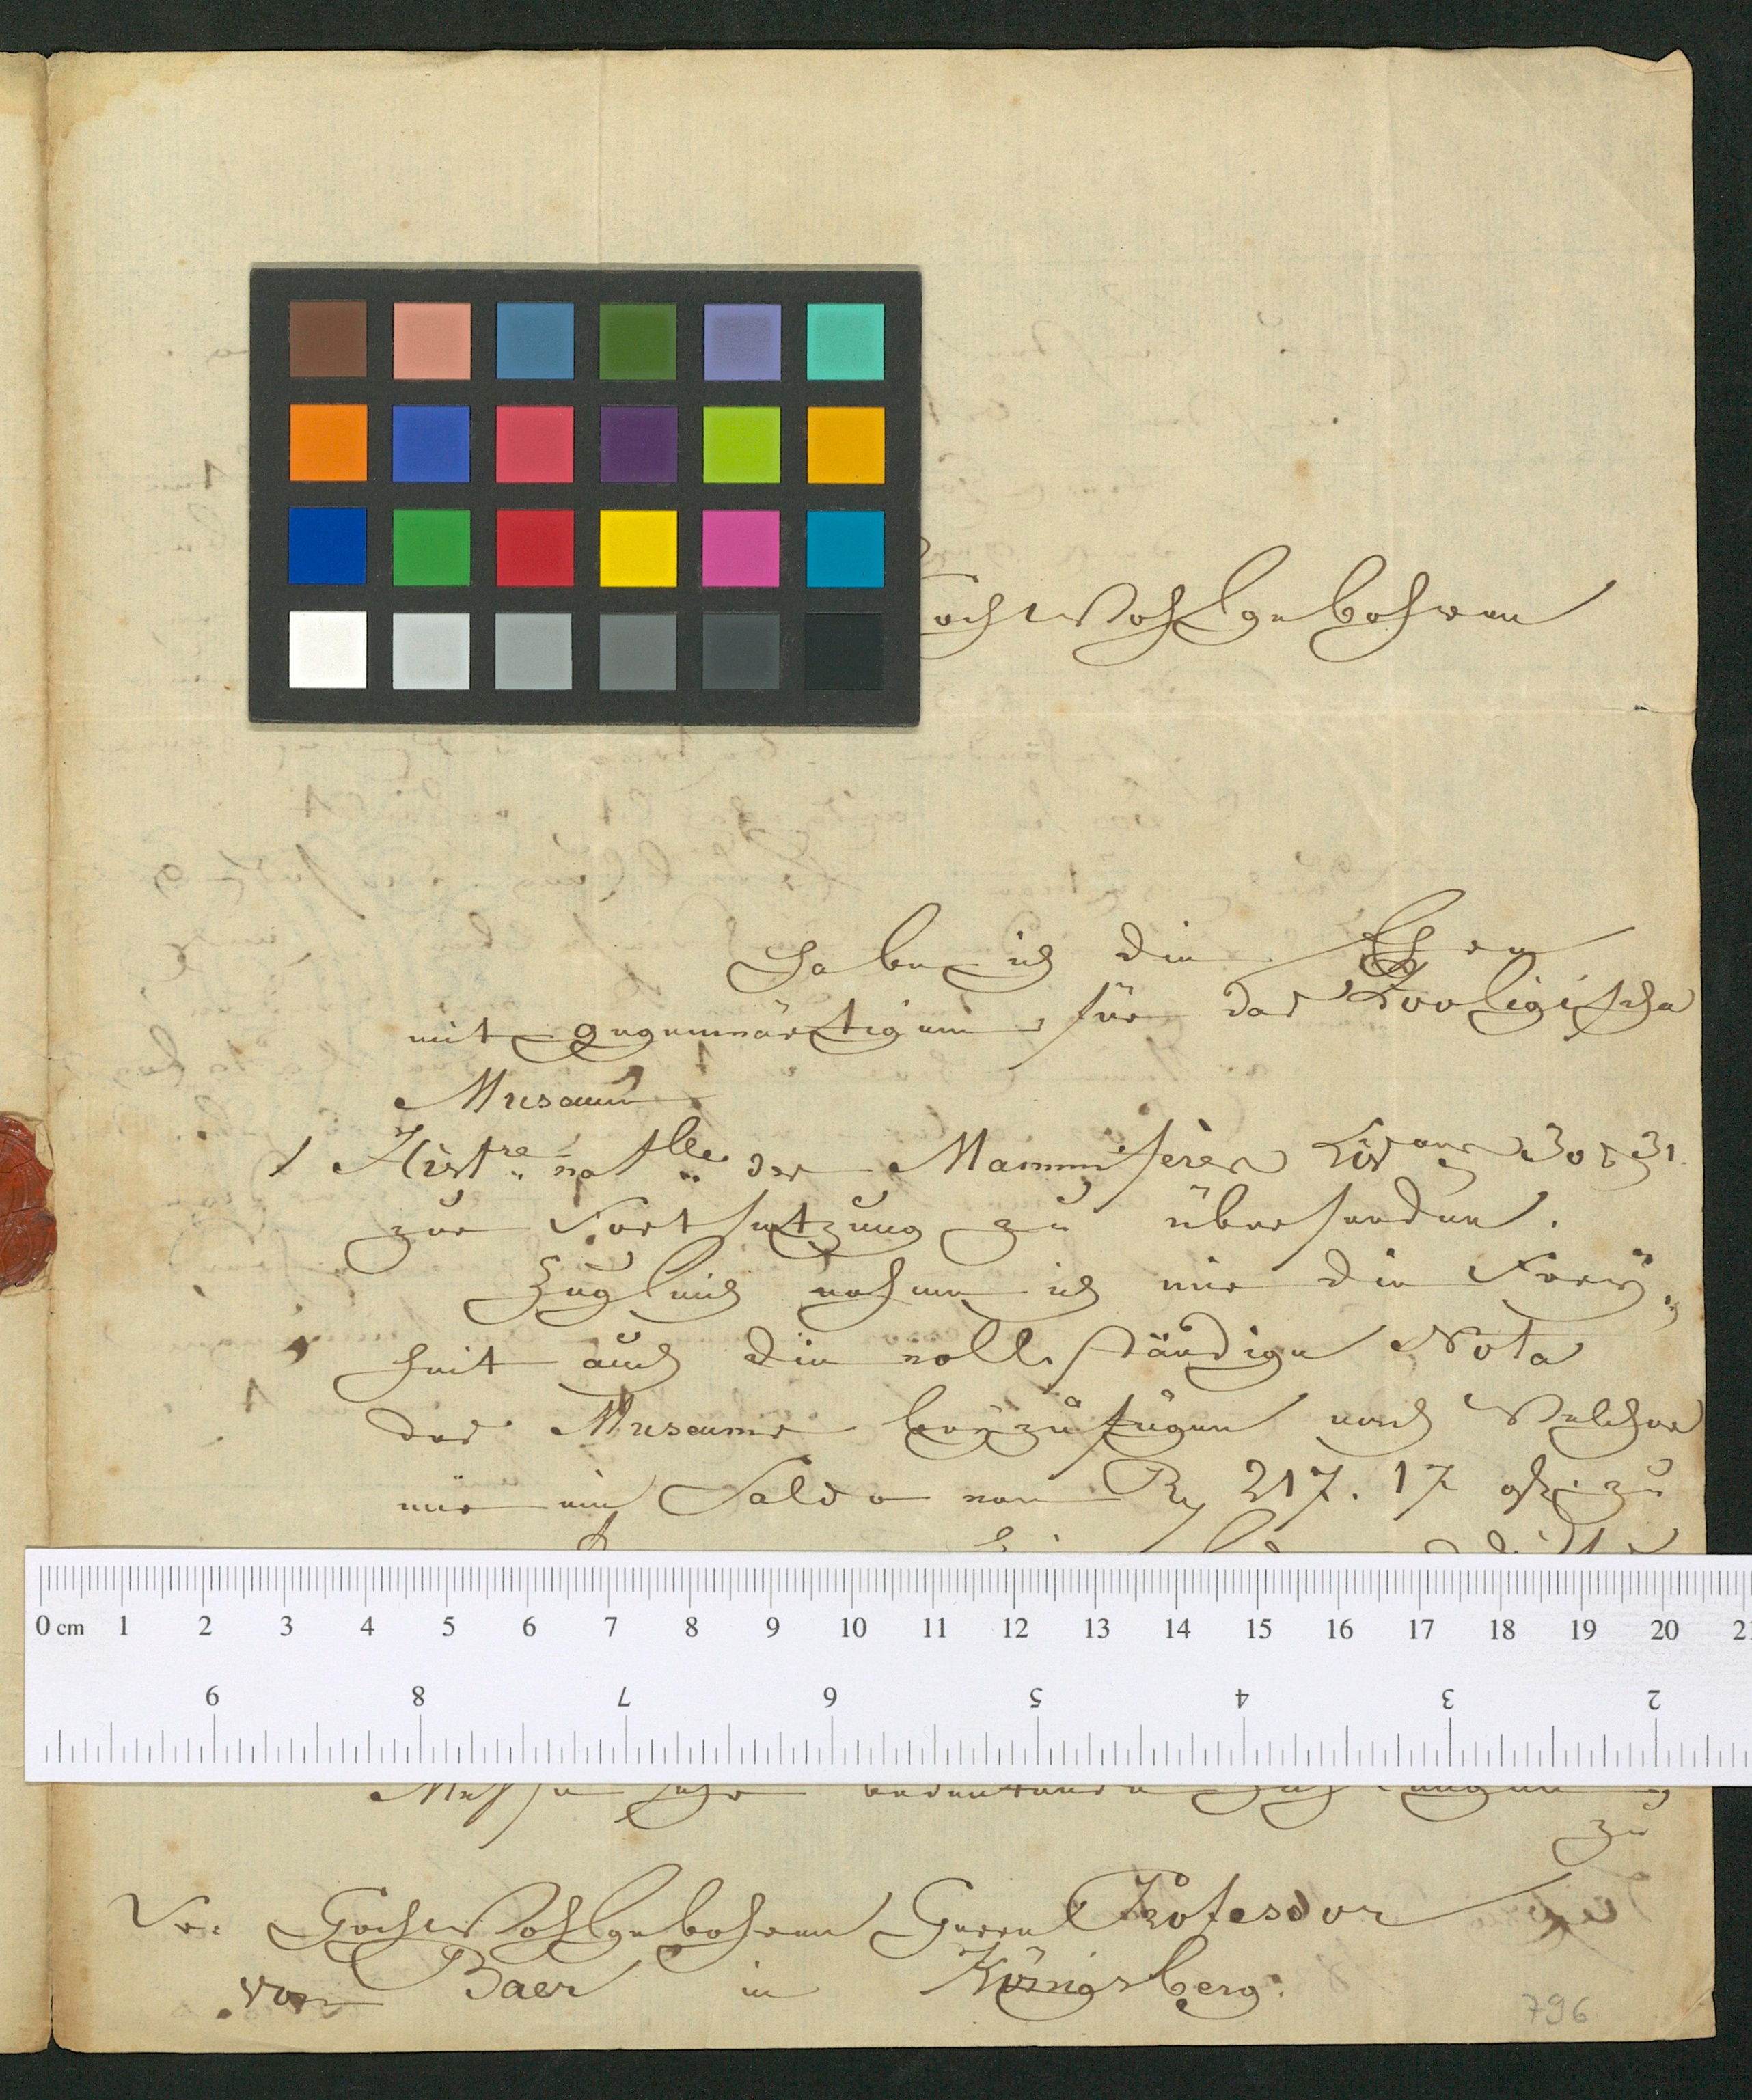 HochWohlgebohren
Habe ich die Ehre
mit gegenwärtigem, für das Zooligische
Museum
1 Histre natlle des Mammiferes Livrang 30 & 31.
zur Fortsetzung zu übersenden.
Zugleich nehme ich mir die Frey,,
heit auch die vollständige Nota
des Museums beyzufügen nach Welcher
mir ein Saldo von R 217. 17 zu
0 cm 1 2 3 4 5 6 7 8 9 10 11 12 13 14 15 16 17 18 19 20 21
9 8 7 6 5 4 3 2
Messe sehr bedeutende Zahlungen
zu
Sr. HochWohlgebohren Herrn Professor
von Baer in Königsberg.
796